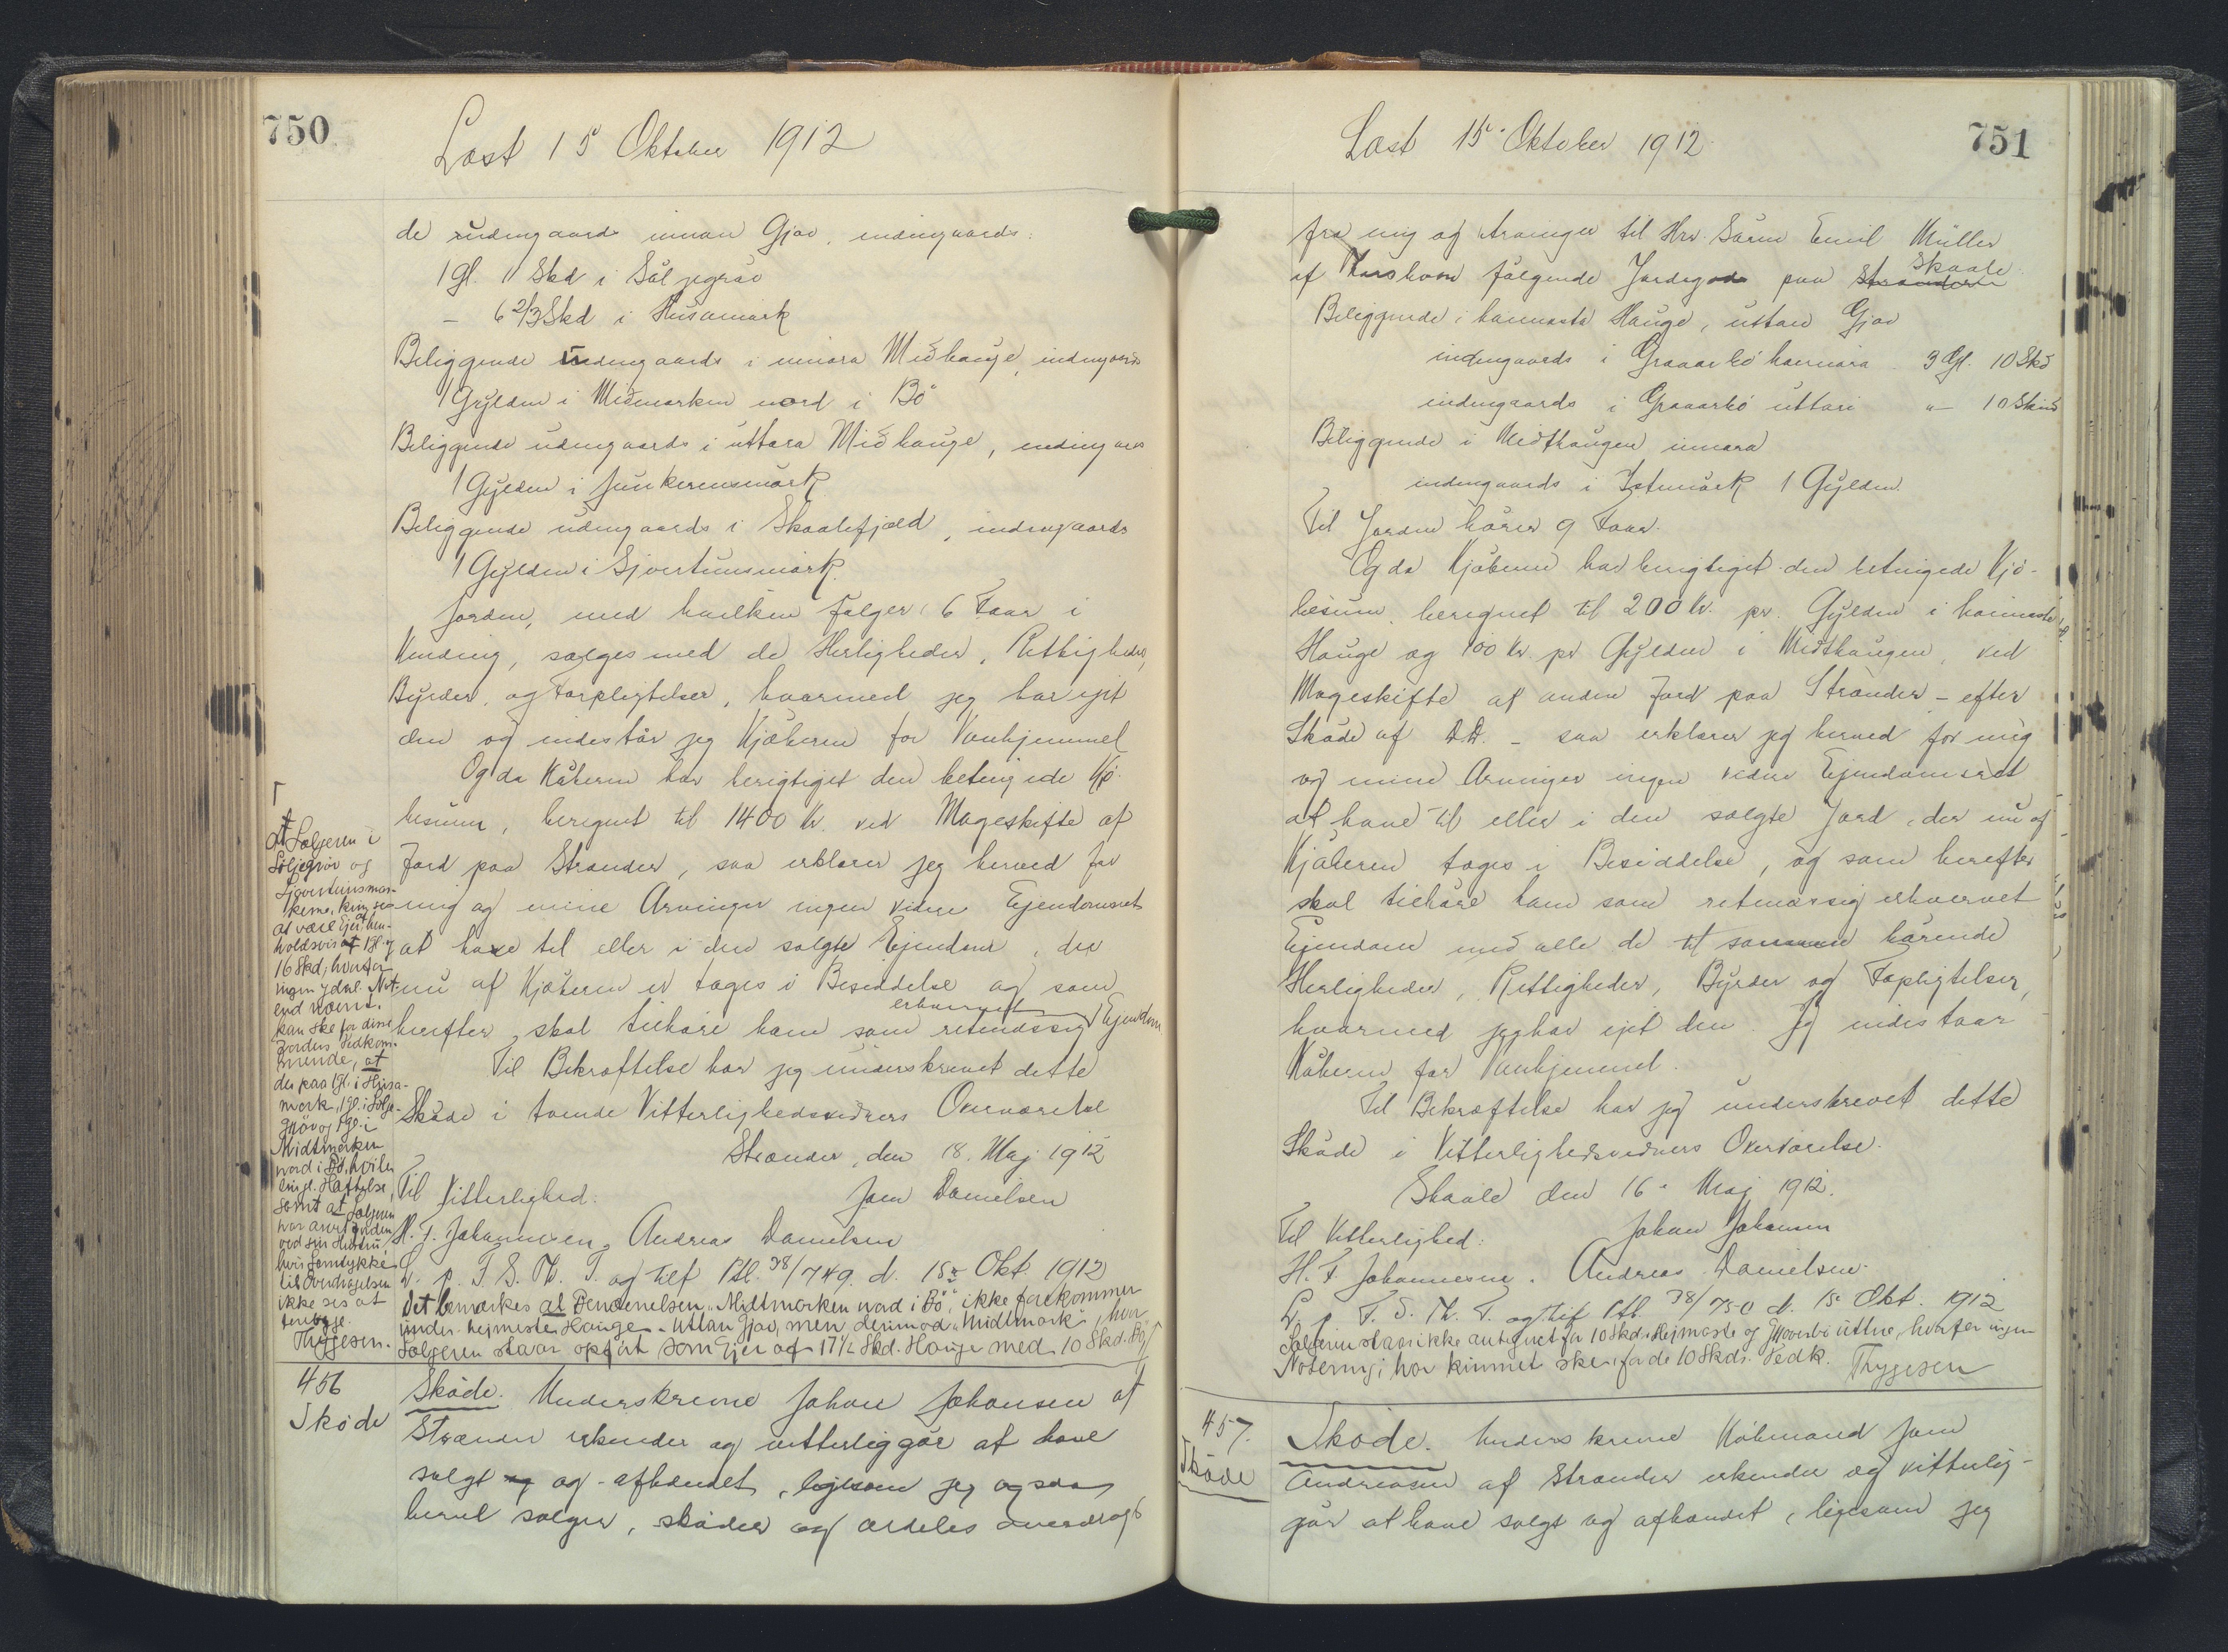 750
Læst 15 Oktober 1912
de udengaards innan Gjov, indengaards:
1 Gl. 11 Skd i Söljegröv
– 6 2/3 Skd i Husamørk
Beliggende udengaards i innara Miðhauge, indengaards
1 Gylden i Miðmørken nord i Bö
Beliggende udengaards i uttara Miðhauge, indengaards
1 Gylden i Junkerensmørk
Beliggende udengaards i Skaalefjæld, indengaards
1 Gylden i Sjovertunsmørk.
Jorden, med hvilken følger 6 Faar i
Vinding, sælges med de Herligheder, Rettigheder,
Byrder, og Forpligtelser, hvormed jeg har ejet
den og indestår jeg Kjøberen for Vanhjemmel
Og da Køberen har berigtiget den betingede Kjö-
besum, beregnet til 1400 Kr. ved Mageskifte af
Jord paa Strænder, saa erklærer jeg herved for
mig og mine Arvinger ingen videre Ejendomsret
at have til eller i den solgte Ejendom, der
nu af Kjøberen er tages i Besiddelse og som
herefter skal tilhøre ham som retmæssig erhvervet Ejendom
Til Bekræftelse har jeg underskrevet dette
Skøde i tvende Vitterlighedsvidners Overværelse
Strænder, den 18. Maj 1912
Til Vitterlighed: Joen Danielsen
H. F. Johannesen, Andreas Danielsen
L. p. F. S. Th. T. og tilf Ptl. 38/749. d. 15de Okt. 1912
Det bemærkes at Benævnelsen "Midtmørken nord i Bö" ikke forekommer
under hejmeste Hauge - Uttan Gjov, men derimod "Midtmørk", hvor
Sælgeren staar opført som Ejer af 17 1/2 Skd. Hauge med 10 Skd. Bø
At Sælgeren i
Söljegröv og
Sjovertunsmør-
kerne, kun ses
at være Ejer hen-
holdsvis af 1 Gl. og
16 Skd, hvorfor
ingen yderl. Not.
end nævnt.
kan ske for disse
Jorders Vedkom-
mende, at
der paa 1 Gl. i Husa-
mørk, 1 Gl. i Sölje-
gröv og 1 Gl. i
Midtmørken
nord i Bø, hviler
tingl. Hæftelse,
samt at Sælgeren
har arvet Jorden
ved sin Hustru,
hvis Samtykke
til Overdragelsen
ikke ses at
foreligge.
Thygesen.
456
Skøde
Skøde. Underskrevne Johan Johansen af
Strænder erkender og vitterliggør at have
solgt og afhændet, ligesom jeg ogsaa
herved sælger, skøder og aldeles overdrager
Læst 15. Oktober 1912
751
fra mig og Arvinger til Hrr. Sørin Emil Müller
af Thorshavn følgende Jordegods paa Strænder Skaale
Beliggende i haimasta Hauge, uttan Gjov
indengaards i Graaarbö haimara 3 Gl. 10 Skd
indengaards i Graaarbö uttari „– 10 Skind
Beliggende i Miðhaugen innara
indengaards i Istmørk 1 Gylden.
Til Jorden hører 9 Faar.
Og da Kjøberen har berigtiget den betingede Kjö-
besum, beregnet til 200 Kr. pr. Gylden i haimasta
Hauge og 100 Kr. pr Gylden i Miðthaugen, ved
Mageskifte af anden Jord paa Strænder – efter
Skøde af D.D. – saa erklærer jeg herved for mig
og mine Arvinger ingen videre Ejendomsret
at have til eller i den solgte Jord, der nu af
Kjøberen tages i Besiddelse, og som herefter
skal tilhøre ham som retmæssig erhvervet
Ejendom med alle de til samme hørende
Herligheder, Rettigheder, Byrder og Fopligtelser,
hvormed jeg har ejet den. Jeg indestaar
Køberen for Vanhjemmel.
Til Bekræftelse har jeg underskrevet dette
Skøde i Vitterlighedsvidners Overværelse.
Skaale den 16. Maj 1912.
Til Vitterlighed: Johan Johansen
H. F Johannesen. Andreas Danielsen.
L. p. F. S. Th. T. og tilf Ptl. 38/750 d. 15 Okt. 1912
Sælgeren staar ikke antegnet for 10 Skd. i Hejmaste og Graverbö uttre, hvorfor ingen
Notering har kunnet ske for de 10 Skds. Vedk. Thygesen
457.
Skøde
Skøde. Underskrevne Købmand Joen
Andreasen af Strænder erkender og vitterlig-
gør at have solgt og afhændet, ligesom jeg